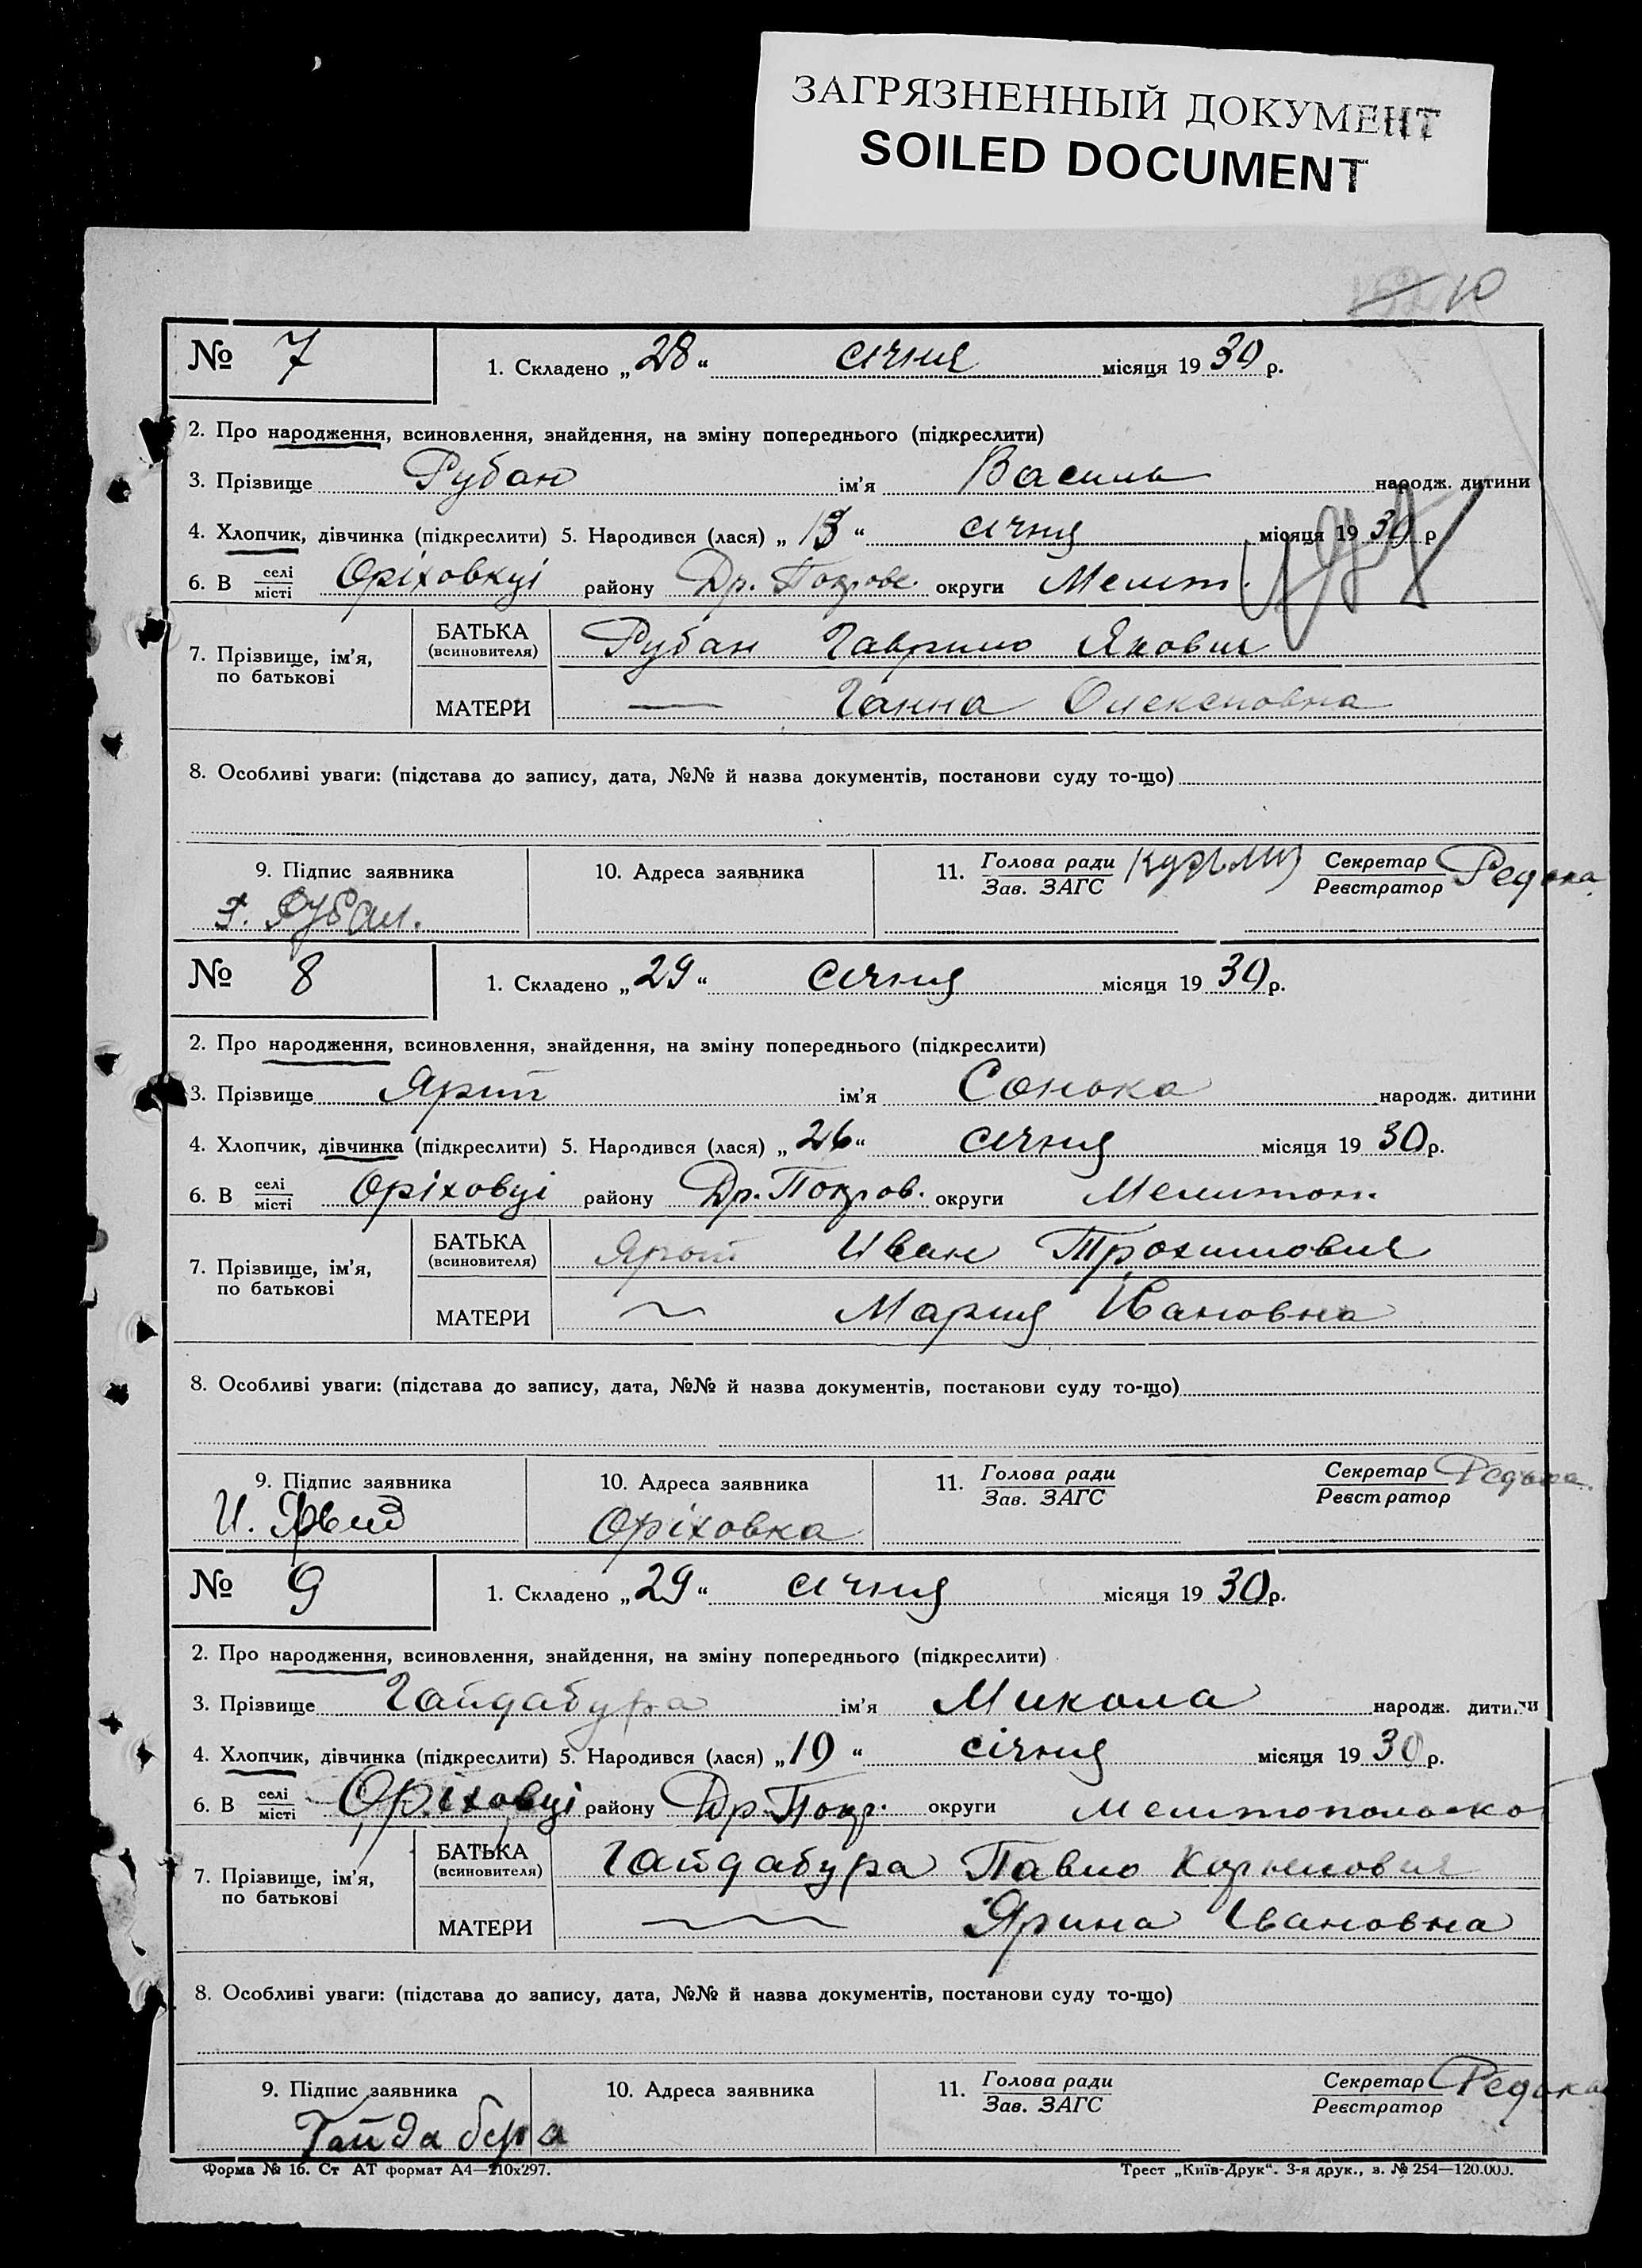 ЗАГРЯЗНЕННЫЙ ДОКУМЕНТ
SOILED DOCUMENT
10
№ 7 1. Складено „28“ січня місяця 1930 р.
2. Про народження, всиновлення, знайдення, на зміну попереднього (підкреслити)
3. Прізвище Рубан ім'я Василь народж. дитини
4. Хлопчик, дівчинка (підкреслити) 5. Народився (лася) „13“ січня місяця 1930 р
6. В селі/місті Оріховкці району Др. Покровс. округи Меліт.
7. Прізвище, ім'я, по батькові
БАТЬКА (всиновителя) Рубан Гаврило Якович
МАТЕРИ — Ганна Олексіовна
8. Особливі уваги: (підстава до запису, дата, №№ й назва документів, постанови суду то-що)
9. Підпис заявника 10. Адреса заявника 11. Голова ради/Зав. ЗАГС Секретар/Реєстратор Редька
Г. Рубан.
№ 8 1. Складено „29“ січня місяця 1930 р.
2. Про народження, всиновлення, знайдення, на зміну попереднього (підкреслити)
3. Прізвище ім'я Сонька народж. дитини
4. Хлопчик, дівчинка (підкреслити) 5. Народився (лася) „26“ січня місяця 1930 р.
6. В селі/місті Оріховці району Др. Покров. округи Мелитоп.
7. Прізвище, ім'я, по батькові
БАТЬКА (всиновителя) Иван Трохимович
МАТЕРИ ~ Мария Івановна
8. Особливі уваги: (підстава до запису, дата, №№ й назва документів, постанови суду то-що)
9. Підпис заявника 10. Адреса заявника 11. Голова ради/Зав. ЗАГС Секретар/Реєстратор Редька.
И. Оріховка
№ 9 1. Складено „29“ січня місяця 1930 р.
2. Про народження, всиновлення, знайдення, на зміну попереднього (підкреслити)
3. Прізвище Гайдабура ім'я Микола народж. дитини
4. Хлопчик, дівчинка (підкреслити) 5. Народився (лася) „19“ січня місяця 1930 р.
6. В селі/місті Оріховці району Др. Покр. округи Мелітопольско
7. Прізвище, ім'я, по батькові
БАТЬКА (всиновителя) Гайдабура Павло Корнієович
МАТЕРИ ~ Ярина Івановна
8. Особливі уваги: (підстава до запису, дата, №№ й назва документів, постанови суду то-що)
9. Підпис заявника 10. Адреса заявника 11. Голова ради/Зав. ЗАГС Секретар/Реєстратор Редька
Гайдабура
Форма № 16. Ст АТ формат А4—210х297. Трест „Київ-Друк“. 3-я друк., з. № 254—120.000.